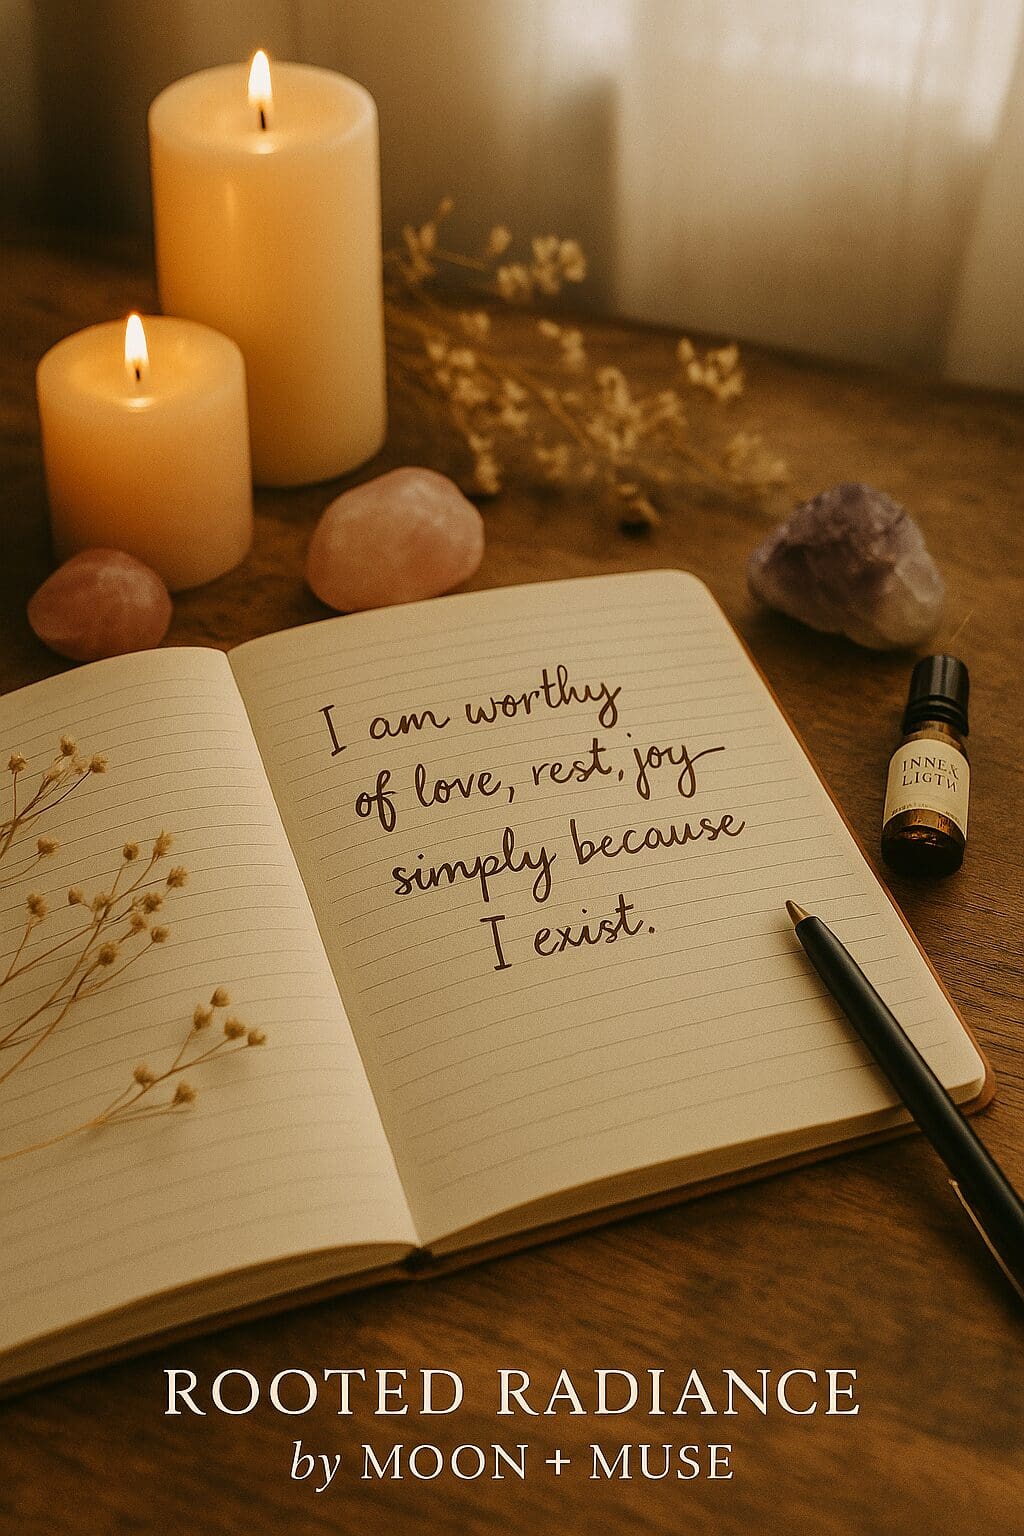 I am worthy
of love, rest, joy—
simply because
I exist.
INNEK
LIGTW
ROOTED RADIANCE
by MOON + MUSE